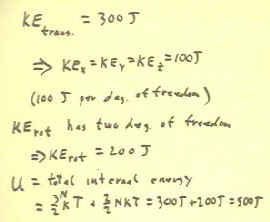 KE trans. = 300 J
⇒ KEx = KEy = KEz = 100 J
(100 J per deg. of freedom)
KE rot has two deg. of freedom
⇒ KE rot = 200 J
U = total internal energy
= 3/2 NKT + 2/2 NKT = 300J + 200J = 500J